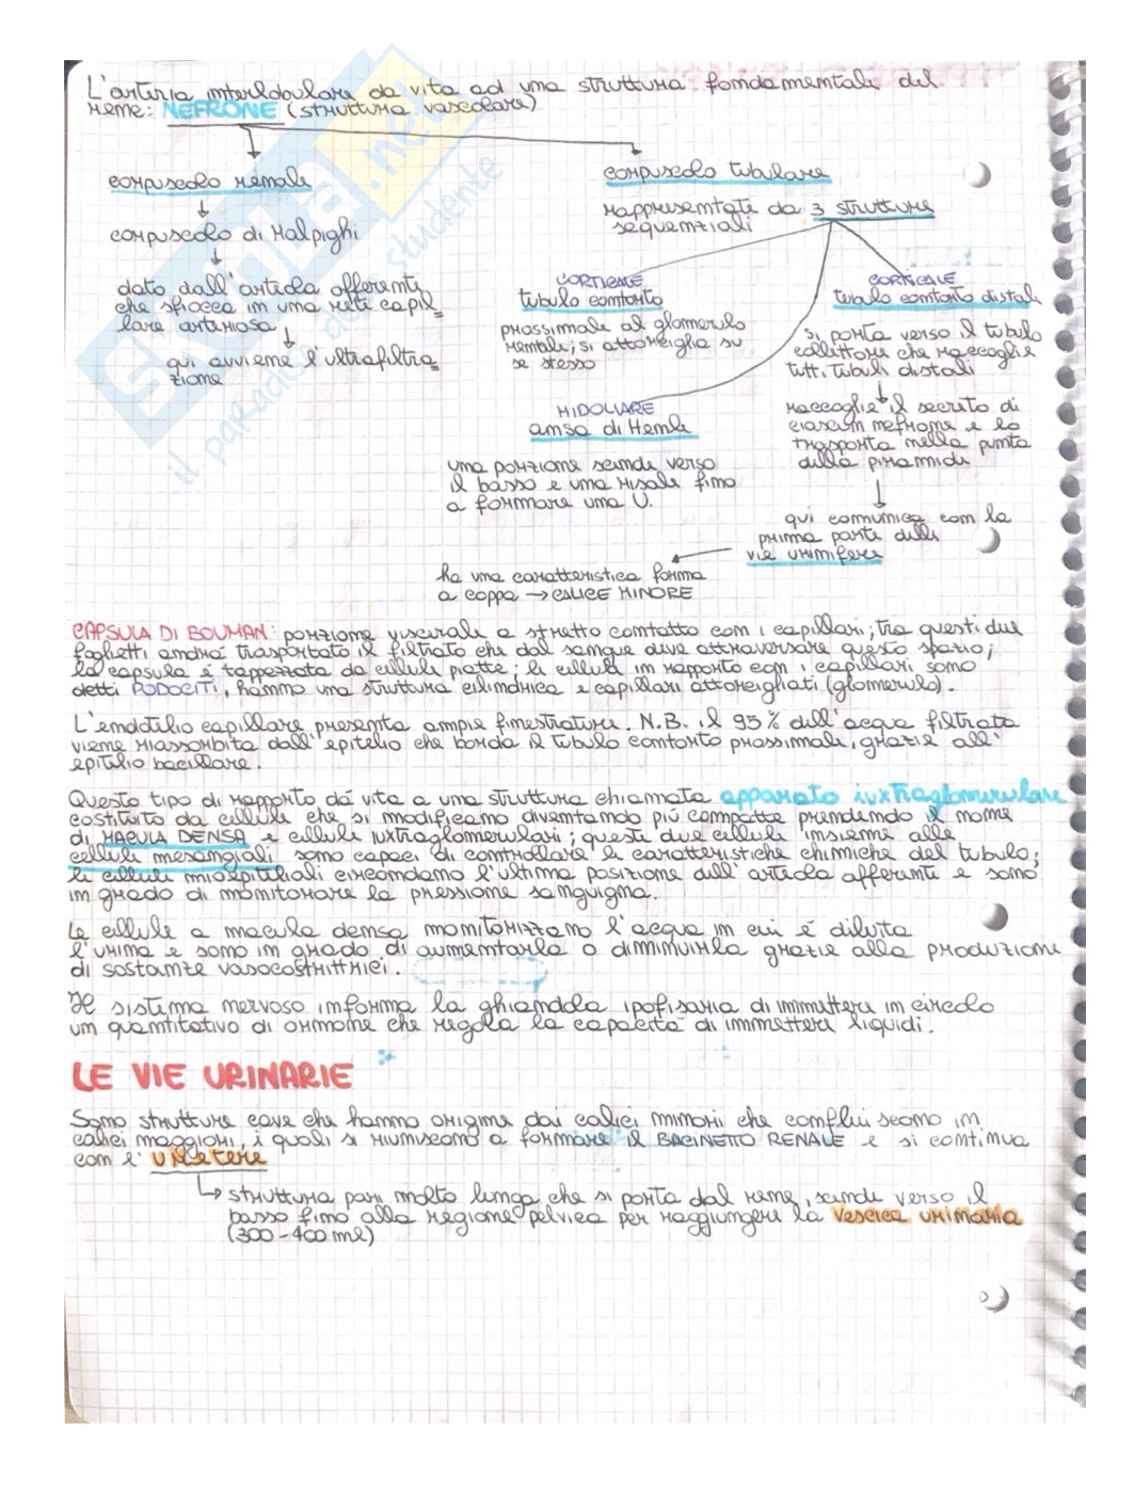 L'arteria interlobulare da vita ad una struttura fondamentale del
rene: NEFRONE (struttura vascolare)
corpuscolo renale
corpuscolo di Malpighi
dato dall'arteriola afferente
che sfiocca in una rete capil=
lare arteriosa
qui avviene l'ultrafiltra=
zione
corpuscolo tubulare
rappresentate da 3 strutture
sequenziali
CORTICALE
tubulo contorto
prossimale al glomerulo
renale; si attorciglia su
se stesso
MIDOLLARE
ansa di Henle
una porzione scende verso
il basso e una risale fino
a formare una U.
CORTICALE
tubulo contorto distale
si porta verso il tubulo
collettore che raccoglie
tutti tubuli distali
raccoglie il secreto di
ciascun nefrone e lo
trasporta nella punta
della piramide
qui comunica con la
prima parte delle
vie urinifere
ha una caratteristica forma
a coppa → CALICE MINORE
CAPSULA DI BOUMAN: porzione viscerale a stretto contatto con i capillari; tra questi due
foglietti andrà trasportato il filtrato che dal sangue deve attraversare questo spazio;
la capsula è tappezzata da cellule piatte; le cellule in rapporto con i capillari sono
detti PODOCITI, hanno una struttura cilindrica e capillari attorcigliati (glomerulo).
L'endotelio capillare presenta ampie finestrature. N.B. il 95% dell'acqua filtrata
viene riassorbita dall'epitelio che borda il tubulo contorto prossimale, grazie all'
epitelio bacillare.
Questo tipo di rapporto dà vita a una struttura chiamata apparato iuxtraglomerulare
costituito da cellule che si modificano diventando più compatte prendendo il nome
di MACULA DENSA e cellule iuxtraglomerulari; queste due cellule insieme alle
cellule mesangiali sono capaci di controllare le caratteristiche chimiche del tubulo;
le cellule mioepiteliali circondano l'ultima posizione dell'arteriola afferente e sono
in grado di monitorare la pressione sanguigna.
Le cellule a macula densa monitorizzano l'acqua in cui è diluita
l'urina e sono in grado di aumentarla o diminuirla grazie alla produzione
di sostanze vasocostrittrici.
Il sistema nervoso informa la ghiandola ipofisaria di immettere in circolo
un quantitativo di ormone che regola la capacità di immettere liquidi.
LE VIE URINARIE
Sono strutture cave che hanno origine dai calici minori che confluiscono in
calici maggiori, i quali si riuniscono a formare il BACINETTO RENALE e si continua
con l'uretere
↳ struttura pari molto lunga che si porta dal rene, scende verso il
basso fino alla regione pelvica per raggiungere la vescica urinaria
(300-400 ml)
Skuola.net
il paradiso dello studente